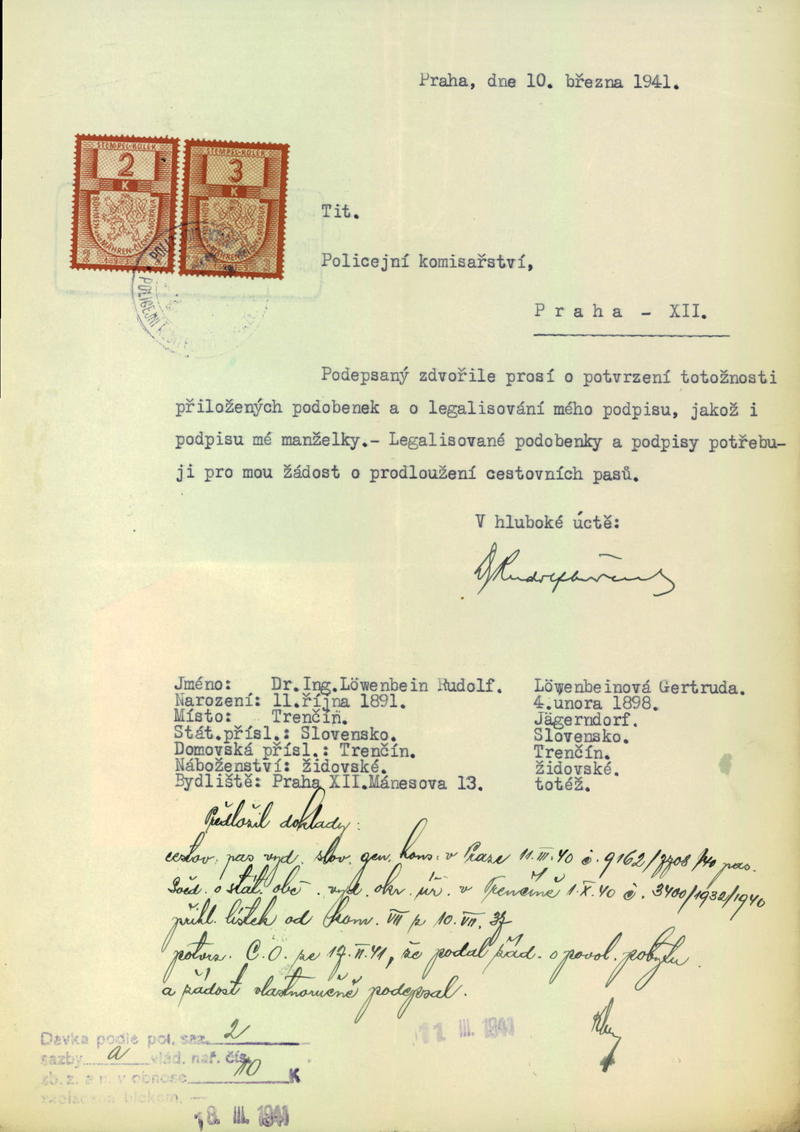 Praha, dne 10. března 1941.
STEMPEL-KOLEK STEMPEL-KOLEK
2 3
K K
BÖHMEN UND MÄHREN-ČECHY A MORAVA
2 2 3 3
POLICEJNÍ
Tit.
Policejní komisařství,
Praha - XII.
Podepsaný zdvořile prosí o potvrzení totožnosti
přiložených podobenek a o legalisování mého podpisu, jakož i
podpisu mé manželky.- Legalisované podobenky a podpisy potřebu-
ji pro mou žádost o prodloužení cestovních pasů.
V hluboké úctě:
Jméno: Dr.Ing.Löwenbein Rudolf. Löwenbeinová Gertruda.
Narození: 11.října 1891. 4.unora 1898.
Místo: Trenčín. Jägerndorf.
Stát.přísl.: Slovensko. Slovensko.
Domovská přísl.: Trenčín. Trenčín.
Náboženství: židovské. židovské.
Bydliště: Praha XII.Mánesova 13. totéž.
Předložil doklady:
cestov. pas vyd. slov. gen. kons. v Praze 11.III.40 č. 9162/7708/40 pas.
osvěd. o stát. obč. vyd. okr. úř. v Trenčíně 1.X.40 č. 3400/1932/1940
přihl. lístek od kom. VII z 10.VII.37
potvrz. C.O. ze 17.II.41, že podal žád. o povol. pobytu
a žádost vlastnoručně podepsal.
11 III. 1941
Dávka podle pol. saz. 2
sazby a vlád. nař. čís.
sb. z. a n. v obnose 10 K
zaplacena blokem. —
18. III. 1941